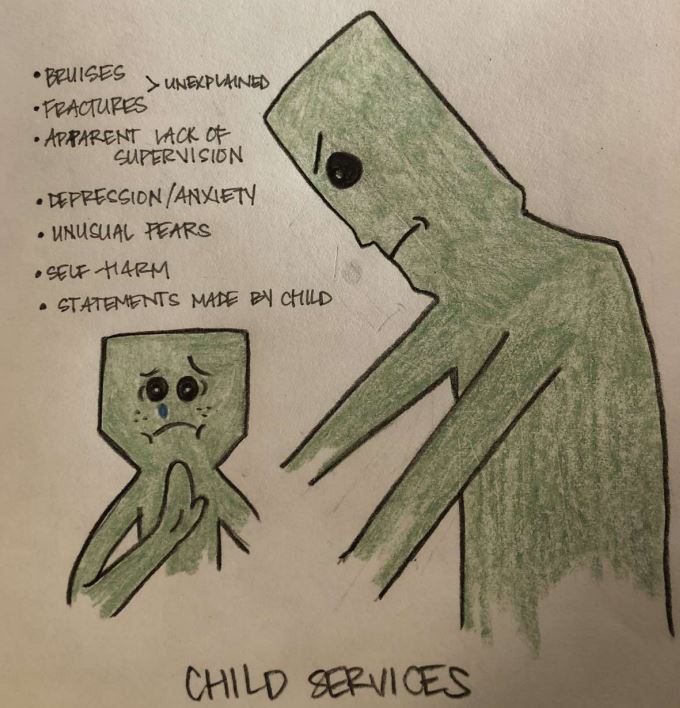 • BRUISES
> UNEXPLAINED
• FRACTURES
• APPARENT LACK OF
SUPERVISION
• DEPRESSION/ANXIETY
• UNUSUAL FEARS
• SELF-HARM
• STATEMENTS MADE BY CHILD
CHILD SERVICES